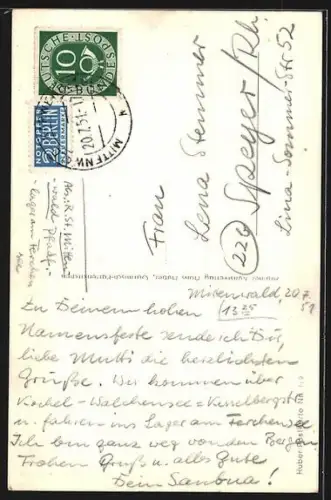 DEUTSCHE BUNDESPOST
10
NOTOPFER
2 BERLIN
STEUERMARKE
MITTENW
20.7.51
Abs. R. St. Mitten-
wald Pfalz.-
lager am Ferchen-
see
Frau
Lena Stemmer
(22b) Speyer/Rh.
Lina-Sommer-Str 52
Mittenwald 20.7.
51
13 25
Zu Deinem hohen
Namensfeste sende ich Dir,
liebe Mutti die herzlichsten
Grüße. Wir kommen über
Kochel-Walchensee-Kesselbergstr
u. fahren ins Lager am Ferchensee.
Ich bin ganz weg von den Bergen.
Frohen Gruß u. alles Gute
Dein